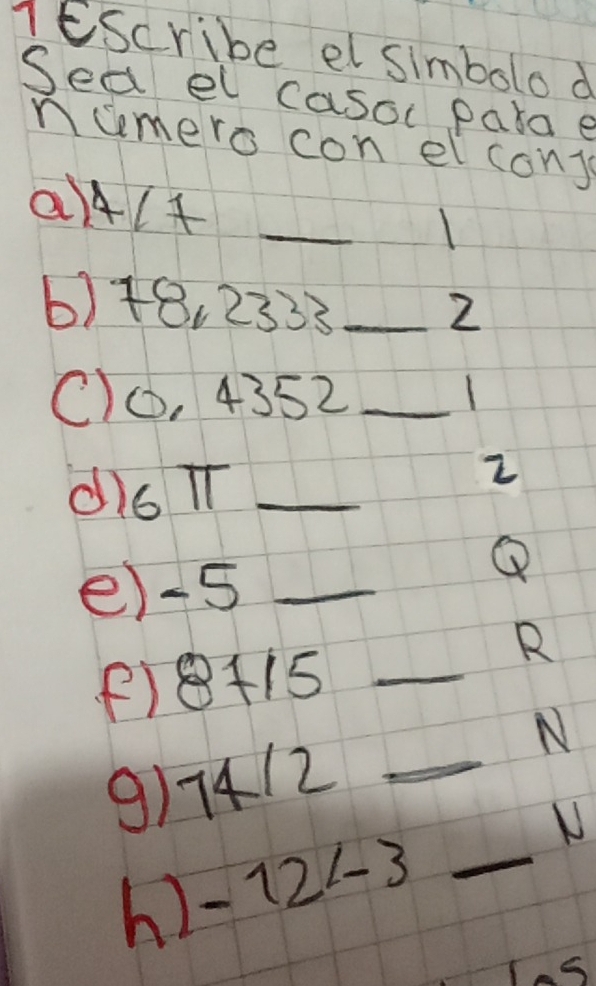 1 Escribe el simbolo d
Sea el caso
para e
número con el conj
a) 4/7 __ 1
b) 78,2333 __ 2
c) 0,4352 __ 1
d) 6 π __ 2
e) -5 __ Q
f) 87/5 __ R
g) 14/2 __ N
h) -12/-3 __ N